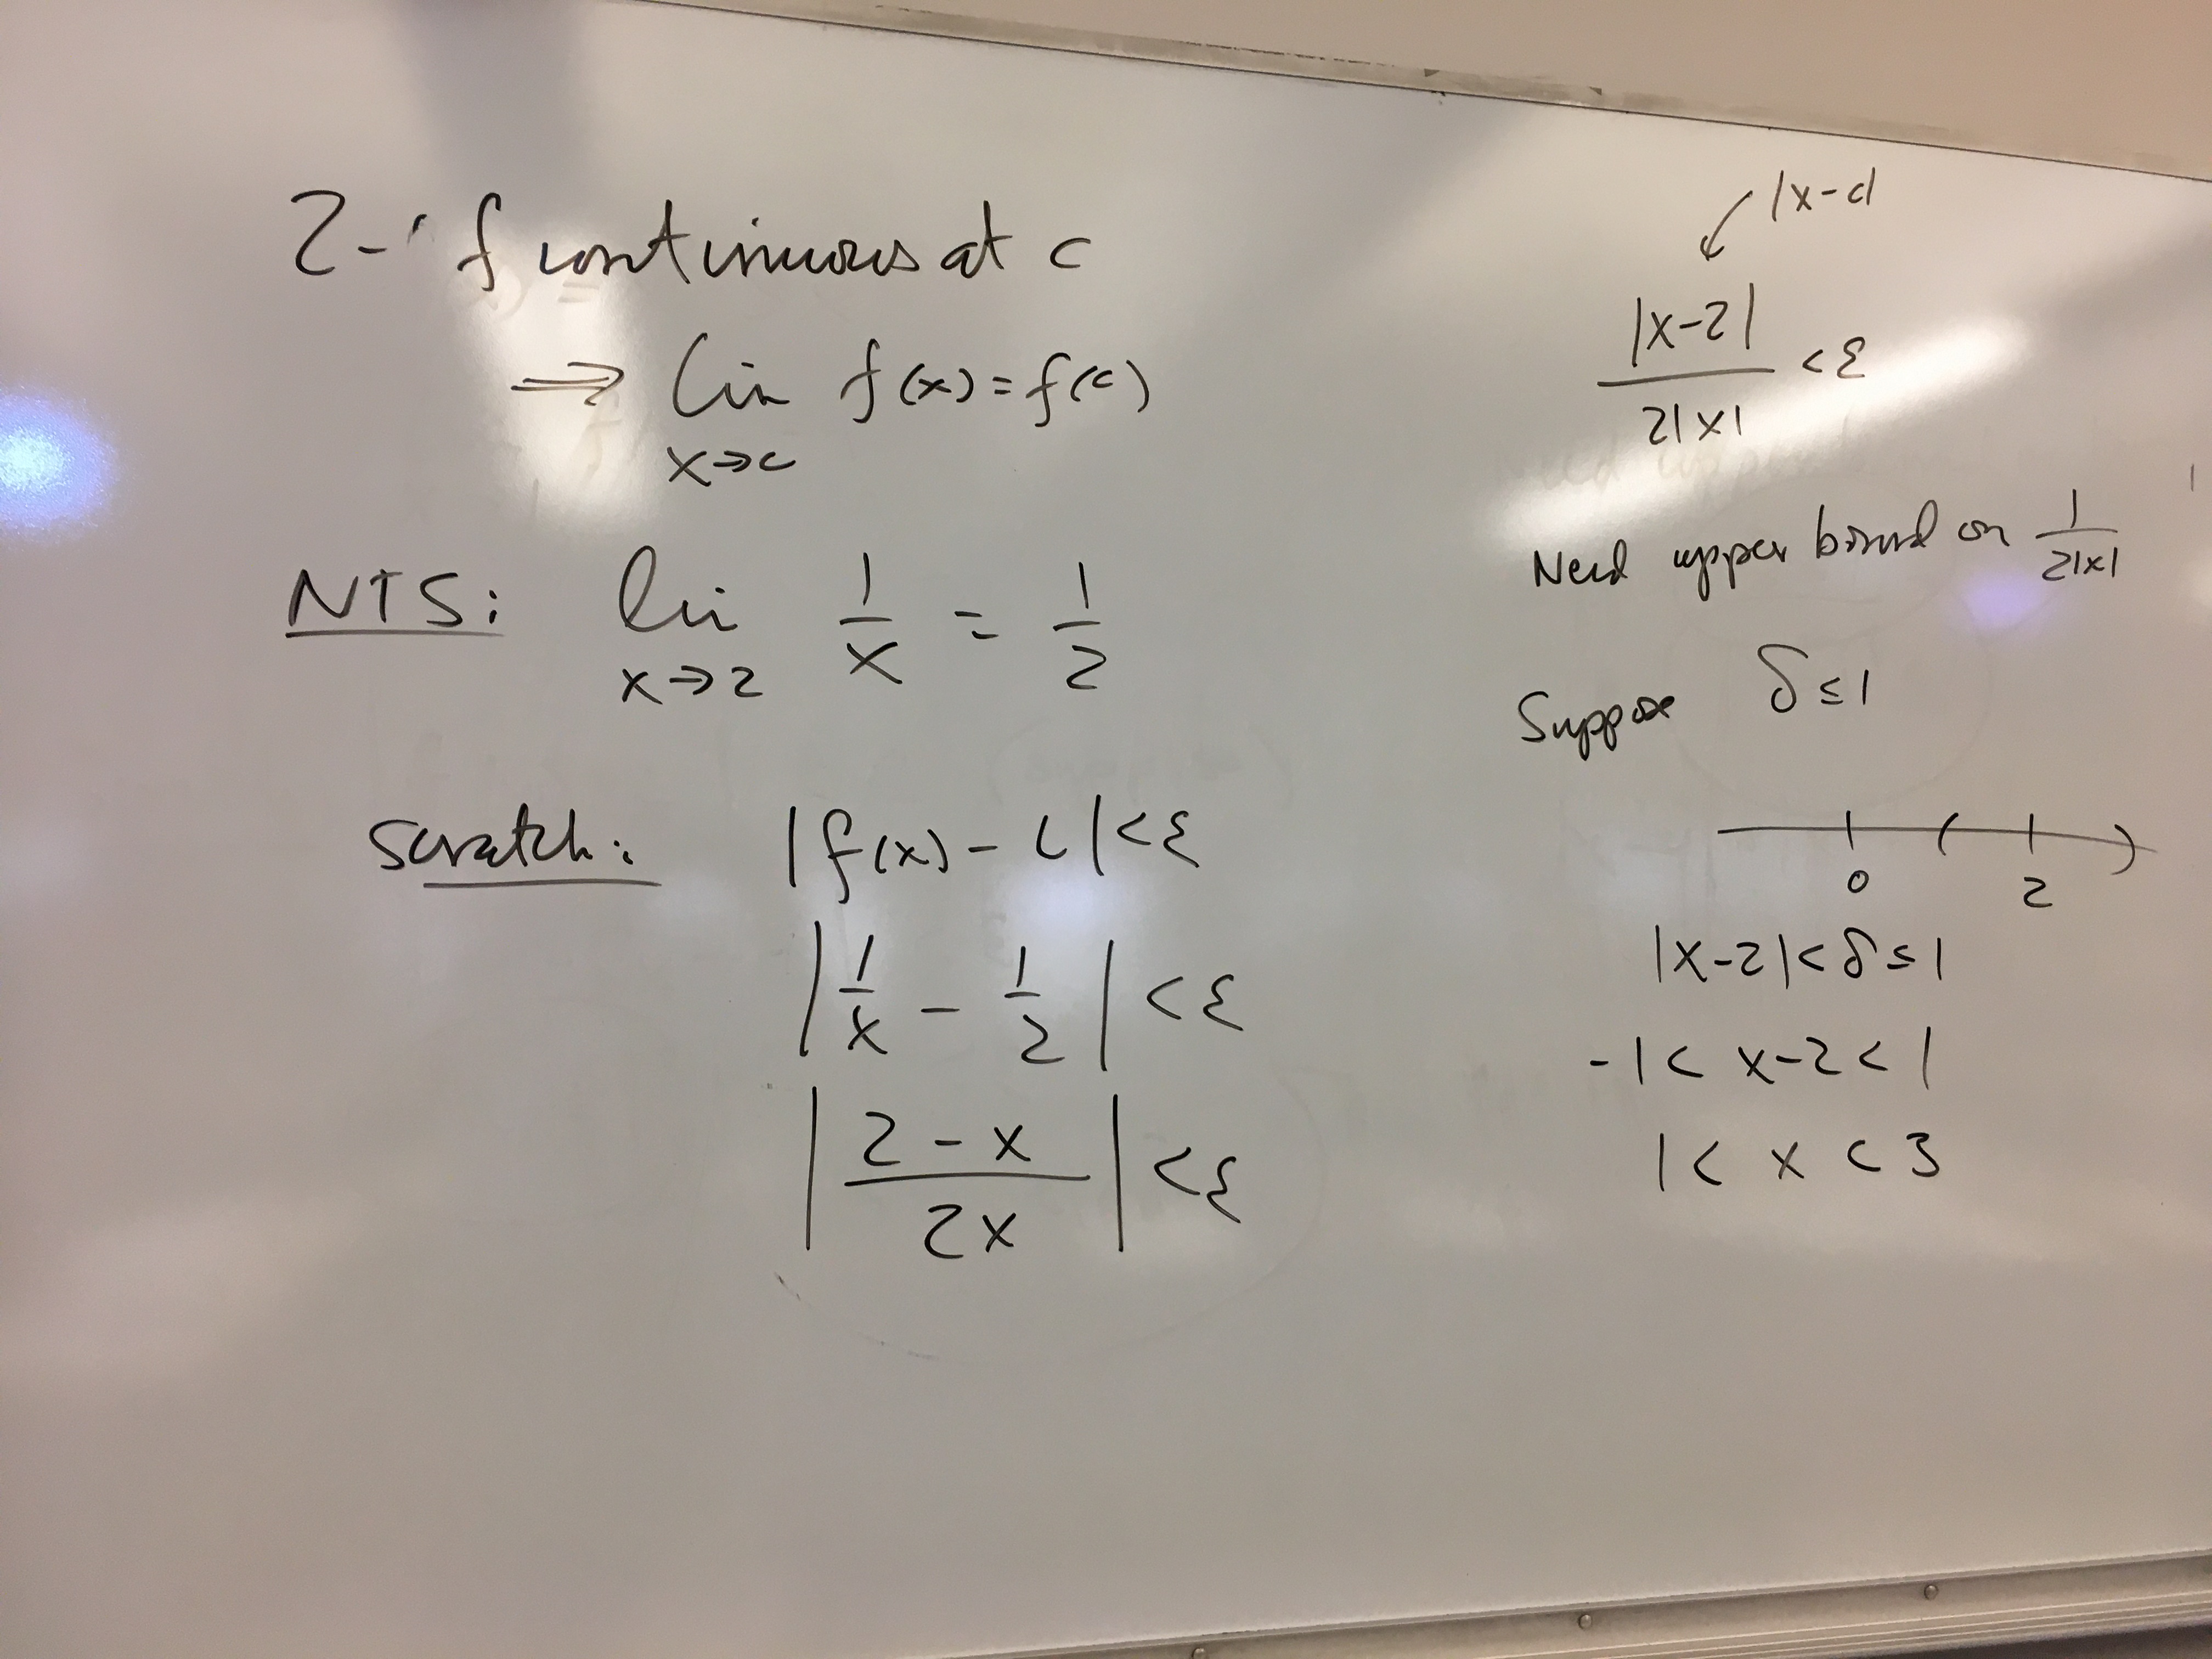 2- f continuous at c
⇒ lim f(x) = f(c)
x→c
NTS: lim 1/x = 1/2
x→2
Scratch: |f(x) - L| < ε
|1/x - 1/2| < ε
|(2 - x)/(2x)| < ε
|x-c|
|x-2|/(2|x|) < ε
Need upper bound on 1/(2|x|)
Suppose δ ≤ 1
0 ( 2 )
|x-2| < δ ≤ 1
-1 < x-2 < 1
1 < x < 3